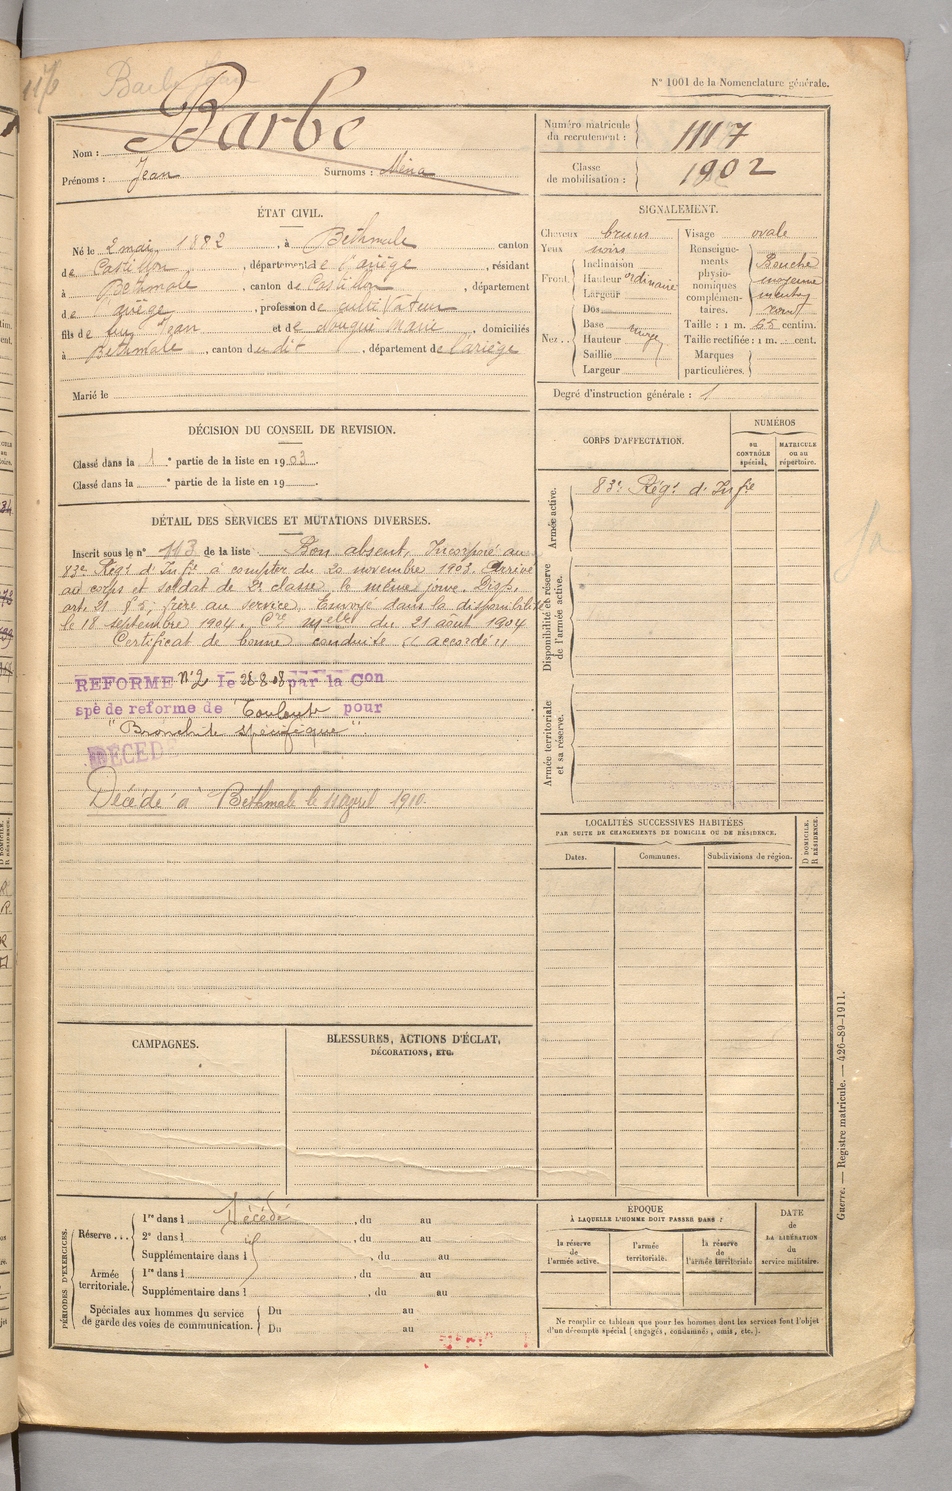 Barbe Jean
N° 1001 de la Nomenclature générale.
Nom : Barbe
Prénoms : Jean Surnoms :
Numéro matricule du recrutement : 1117
Classe de mobilisation : 1902
ÉTAT CIVIL.
Né le 2 mai 1882, à Bethmale canton
de Castillon, département de l'ariège, résidant
à Bethmale, canton de Castillon, département
de ariège, profession de cultivateur
fils de feu Jean et de Nougué Marie, domiciliés
à Bethmale, canton du dit, département de l'ariège
Marié le
SIGNALEMENT.
Cheveux bruns
Yeux noirs
Front Inclinaison
Hauteur ordinaire
Largeur
Nez Dos
Base
Hauteur moyen
Saillie
Largeur
Visage ovale
Renseignements physionomiques complémentaires. Bouche moyenne menton rond
Taille : 1 m. 65 centim.
Taille rectifiée : 1 m. cent.
Marques particulières.
Degré d'instruction générale : 1
DÉCISION DU CONSEIL DE REVISION.
Classé dans la 1e partie de la liste en 1903.
Classé dans la e partie de la liste en 19
CORPS D'AFFECTATION.
NUMÉROS
au CONTRÔLE spécial.
MATRICULE ou au répertoire.
Armée active.
83e Régt d'Infie
Disponibilité et réserve de l'armée active.
Armée territoriale et sa réserve.
DÉTAIL DES SERVICES ET MUTATIONS DIVERSES.
Inscrit sous le n° 113 de la liste Bon absent, Incorporé au
83e Régt d'Infie à compter du 20 novembre 1903. Arrivé
au corps et soldat de 2e classe le même jour. Disp.
art. 21 § 2, frère au service. Envoyé dans la disponibilité
le 18 septembre 1904. Cre mlle du 21 août 1904
Certificat de bonne conduite "accordé"
REFORME N°2 le 28 8 08 par la Con
spé de reforme de Toulouse pour
"Bronchite spécifique".
DÉCÉDÉ
Décédé à Bethmale le 11 april 1910.
LOCALITÉS SUCCESSIVES HABITÉES
PAR SUITE DE CHANGEMENTS DE DOMICILE OU DE RÉSIDENCE.
Dates. Communes. Subdivisions de région.
D DOMICILE.
R RÉSIDENCE.
CAMPAGNES.
BLESSURES, ACTIONS D'ÉCLAT,
DÉCORATIONS, ETC.
PÉRIODES D'EXERCICES.
Réserve... 1re dans l Décédé, du au
2e dans l, du au
Supplémentaire dans l, du au
Armée territoriale. 1re dans l, du au
Supplémentaire dans l, du au
Spéciales aux hommes du service de garde des voies de communication. Du au
Du au
ÉPOQUE
À LAQUELLE L'HOMME DOIT PASSER DANS :
la réserve de l'armée active.
l'armée territoriale.
la réserve de l'armée territoriale
DATE de LA LIBÉRATION du service militaire.
Ne remplir ce tableau que pour les hommes dont les services font l'objet
d'un décompte spécial (engagés, condamnés, omis, etc.).
Guerre. — Registre matricule. — 426-89-1911.